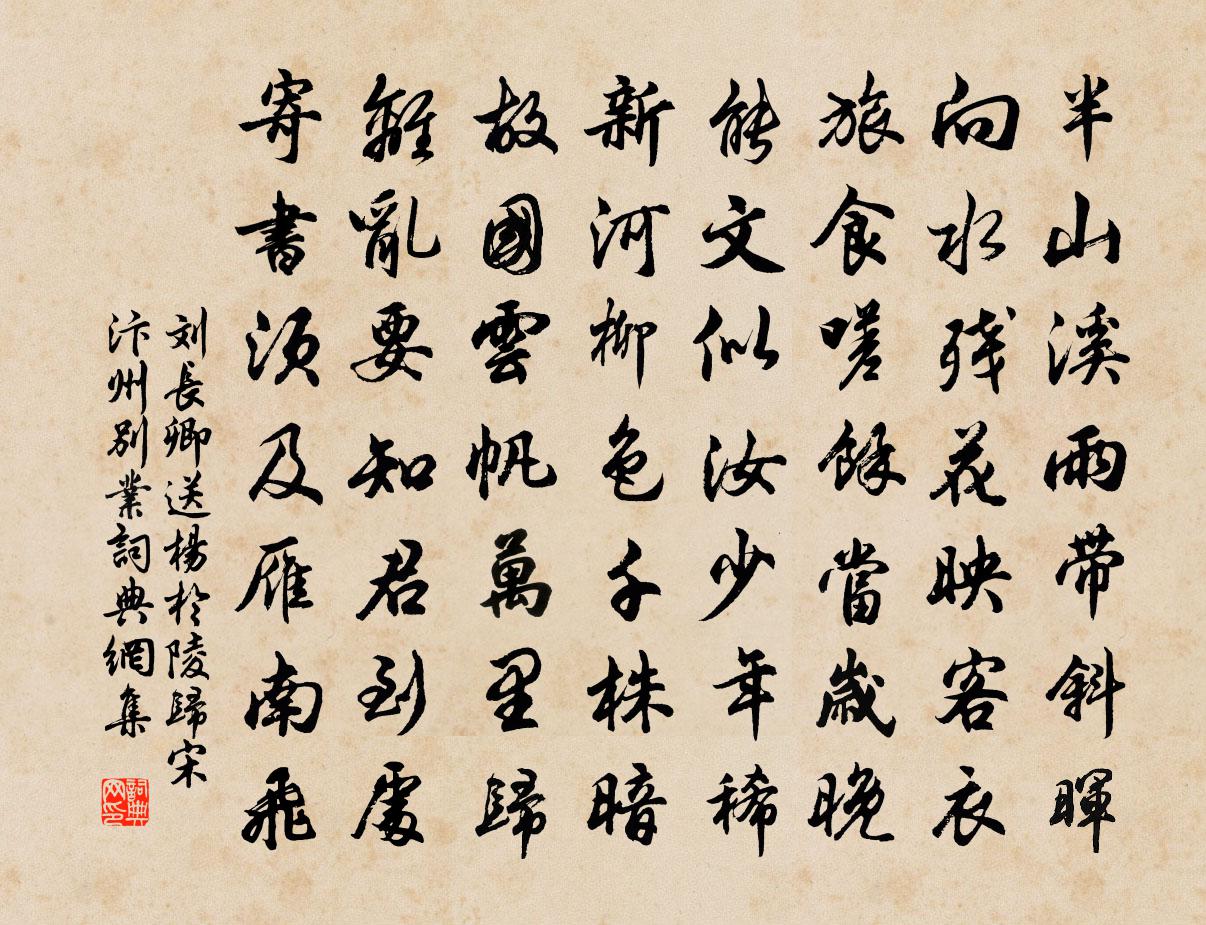 半山溪雨带斜暉
向水残花映客衣
旅食嗟餘當歲晚
能文似汝少年稀
新河柳色千株暗
故國雲帆萬里歸
離亂要知君到處
寄書須及雁南飛
刘長卿送楊於陵歸宋
汴州別業詞典網集
詞典
网印